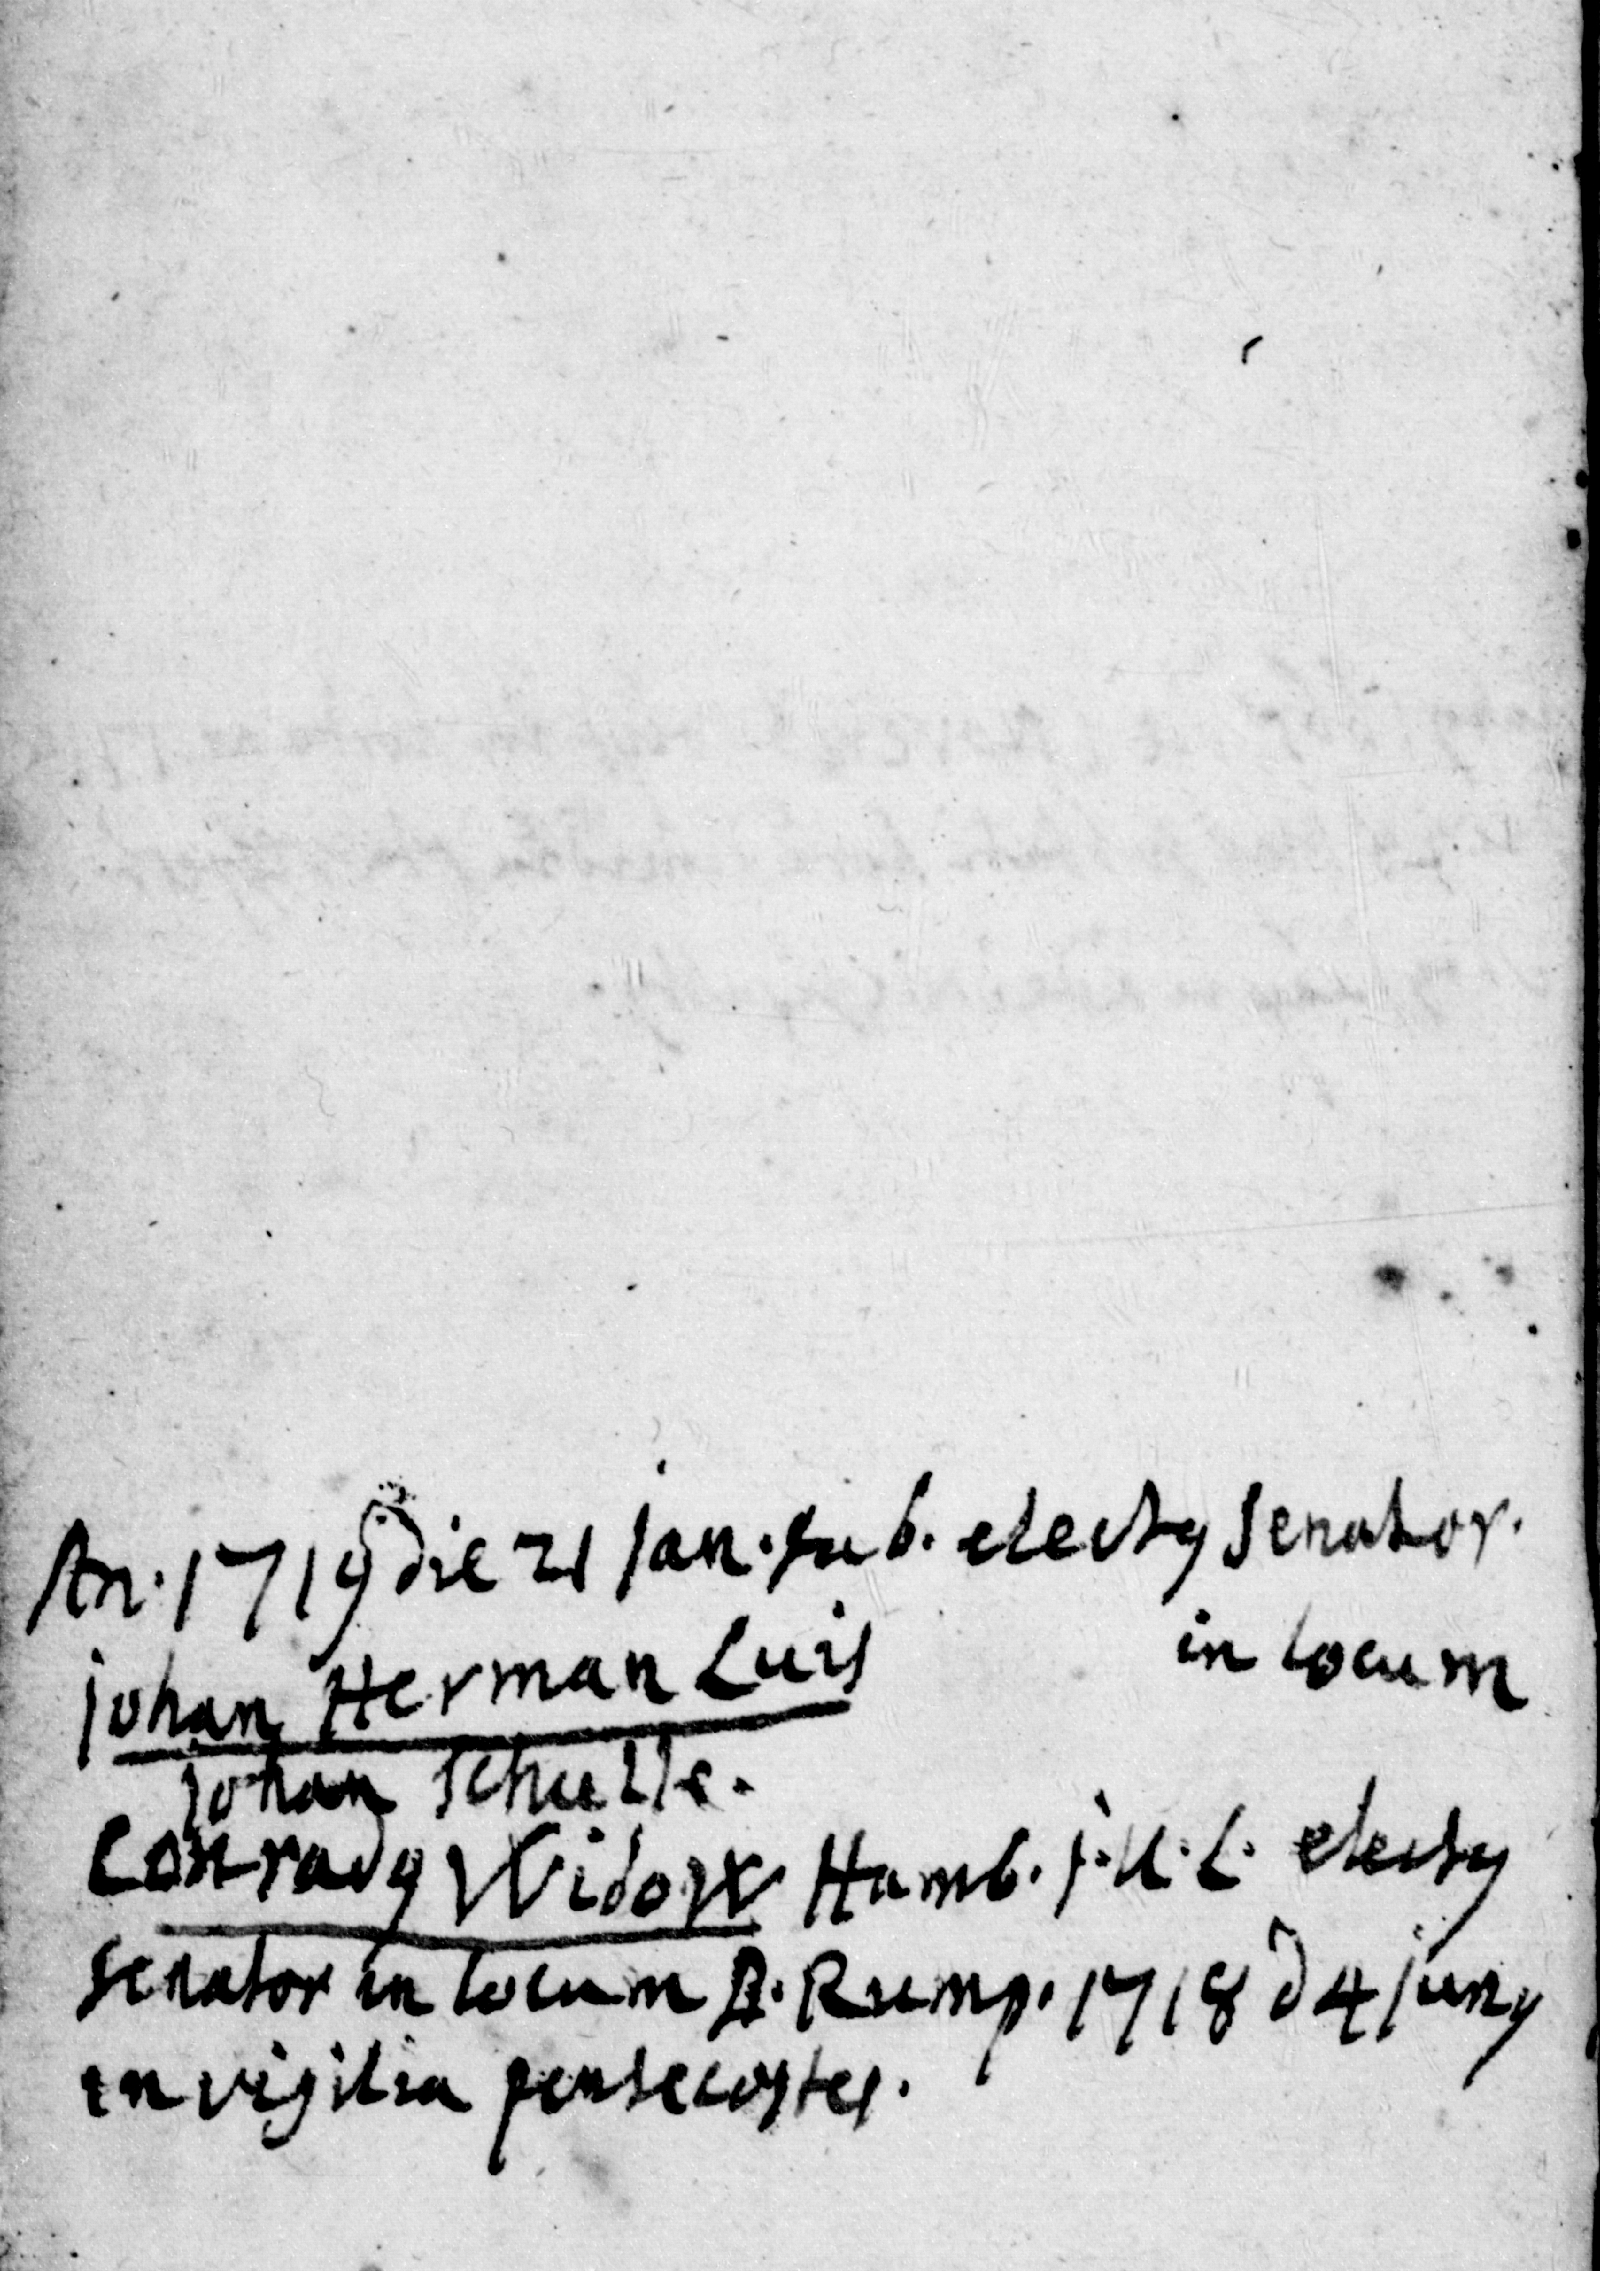 An. 1719 die 21 jan. sub. electꝰ Senator.
johan Herman Luis in locum
johan Schulte.
Conradꝰ Widow Hamb. j. U. L. electꝰ
senator in locum B. Rump. 1718 d 4 juny
in vigilia pentecostes.